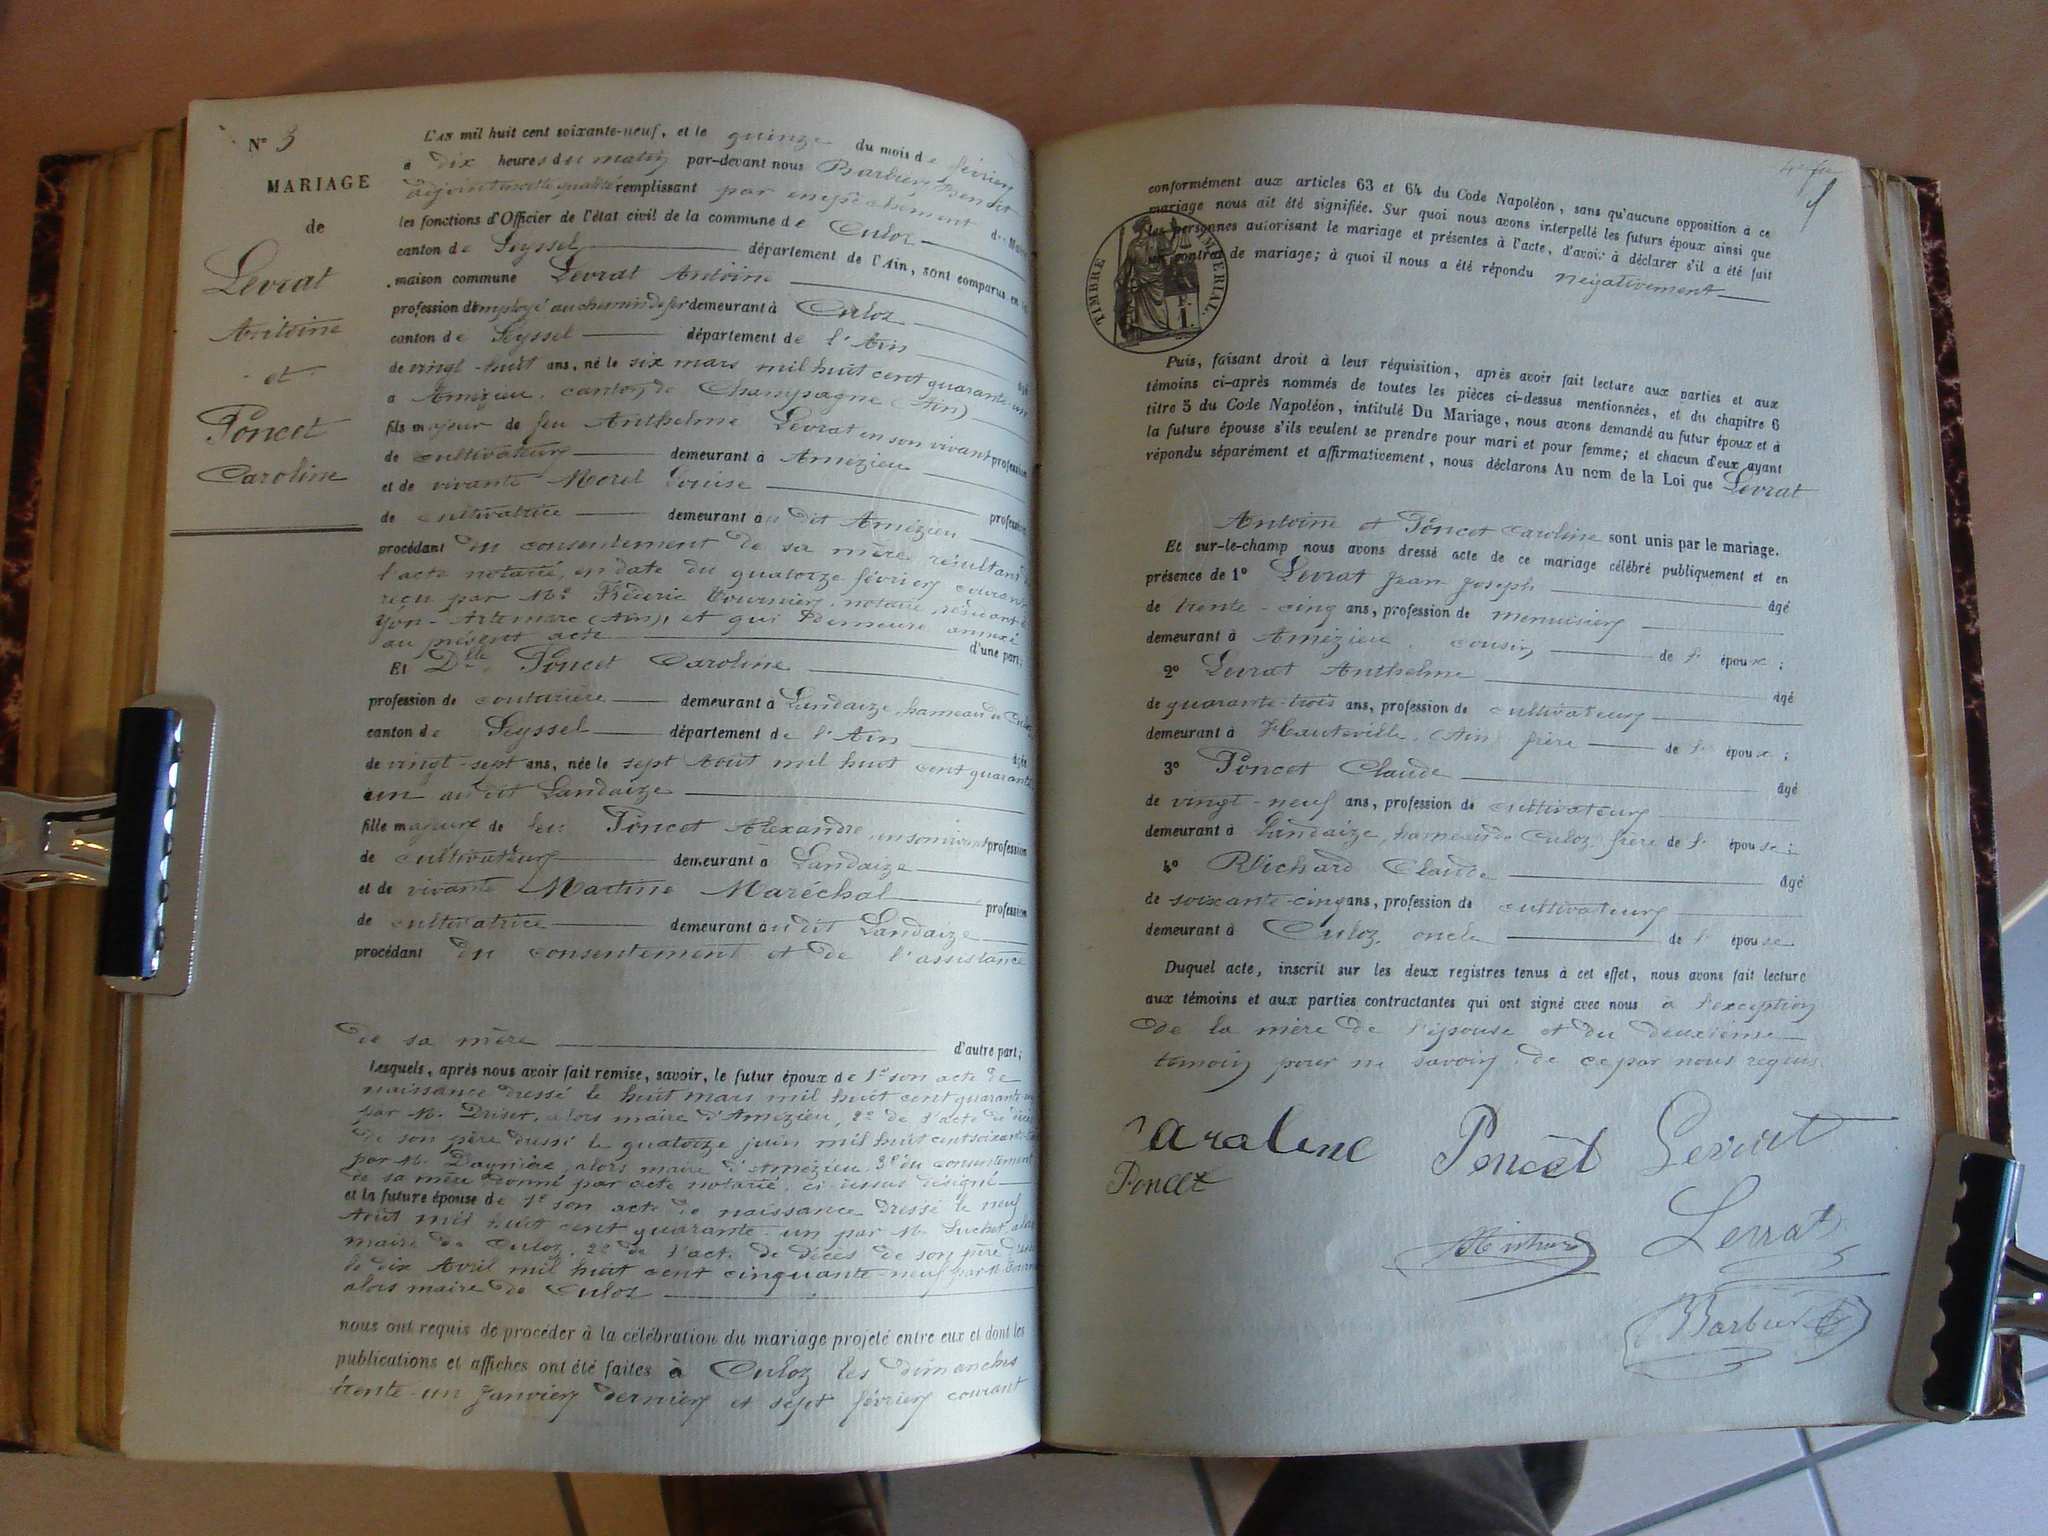 N° 3
MARIAGE
de
Levrat
Antoine
et
Poncet
Caroline
L'AN mil huit cent soixante-neuf, et le quinze du mois de février
a dix heures du matin par-devant nous Barbier Benoit
adjoint remplissant par empêchement du Maire
les fonctions d'Officier de l'état civil de la commune de Culoz
canton de Seyssel département de l'Ain, sont comparus en la
maison commune Levrat Antoine
profession d'employé au chemin de fer demeurant à Culoz
canton de Seyssel département de l'Ain âgé
de vingt-huit ans, né le six mars mil huit cent quarante-un
a Amézieu, canton de Champagne (Ain)
fils majeur de feu Anthelme Levrat en son vivant profession
de cultivateur demeurant à Amézieu
et de vivante Morel Louise profession
de cultivatrice demeurant au dit Amézieu
procédant du consentement de sa mère, résultant de
l'acte notarié, en date du quatorze février courant
reçu par Me Fréderic Tournier, notaire, résidant à
Yon-Artemare (Ain), et qui demeure annexé
au présent acte d'une part;
Et Dlle Poncet Caroline
profession de couturière demeurant à Landaize, hameau de Culoz
canton de Seyssel département de l'Ain âgée
de vingt-sept ans, née le sept Août mil huit cent quarante
un au dit Landaize
fille majeure de feu Poncet Alexandre en son vivant profession
de cultivateur demeurant à Landaize
et de vivante Martine Maréchal profession
de cultivatrice demeurant au dit Landaize
procédant du consentement et de l'assistance
de sa mère d'autre part;
Lesquels, après nous avoir fait remise, savoir, le futur époux de 1° son acte de
naissance dressé le huit mars mil huit cent quarante un
par M. Driset, alors maire d'Amézieu, 2° de l'acte de décès
de son père dressé le quatorze juin mil huit cent soixante
par M. alors maire d'Amézieu, 3° du consentement
de sa mère donné par acte notarié, ci-dessus désigné
et la future épouse de 1° son acte de naissance dressé le neuf
Août mil huit cent quarante-un par M. Suchet, alors
maire de Culoz, 2° de l'acte de décès de son père dressé
le dix Avril mil huit cent cinquante-neuf par M.
alors maire de Culoz
nous ont requis de procéder à la célébration du mariage projeté entre eux et dont les
publications et affiches ont été faites à Culoz les dimanches
trente-un Janvier dernier et sept février courant
conformément aux articles 63 et 64 du Code Napoléon, sans qu'aucune opposition à ce
mariage nous ait été signifiée. Sur quoi nous avons interpellé les futurs époux ainsi que
les personnes autorisant le mariage et présentes à l'acte, d'avoir à déclarer s'il a été fait
un contrat de mariage; à quoi il nous a été répondu négativement
TIMBRE IMPÉRIAL.
1 F.
Puis, faisant droit à leur réquisition, après avoir fait lecture aux parties et aux
témoins ci-après nommés de toutes les pièces ci-dessus mentionnées, et du chapitre 6
titre 5 du Code Napoléon, intitulé Du Mariage, nous avons demandé au futur époux et à
la future épouse s'ils veulent se prendre pour mari et pour femme; et chacun d'eux ayant
répondu séparément et affirmativement, nous déclarons Au nom de la Loi que Levrat
Antoine et Poncet Caroline sont unis par le mariage.
Et sur-le-champ nous avons dressé acte de ce mariage célébré publiquement et en
présence de 1° Levrat Jean Joseph âgé
de trente-cinq ans, profession de menuisier
demeurant à Amézieu, cousin de l'époux;
2° Levrat Anthelme âgé
de quarante-trois ans, profession de cultivateur
demeurant à Hauteville, (Ain) frère de l'époux;
3° Poncet Claude âgé
de vingt-neuf ans, profession de cultivateur
demeurant à Landaize, hameau de Culoz, frère de l'épouse;
4° Richard Claude âgé
de soixante-cinq ans, profession de cultivateur
demeurant à Culoz, oncle de l'épouse
Duquel acte, inscrit sur les deux registres tenus à cet effet, nous avons fait lecture
aux témoins et aux parties contractantes qui ont signé avec nous à l'exception
de la mère de l'épouse et du deuxième
témoin pour ne savoir, de ce par nous requis
Caraline Poncet Levrat
Poncet
Richard Levrat
Barbier